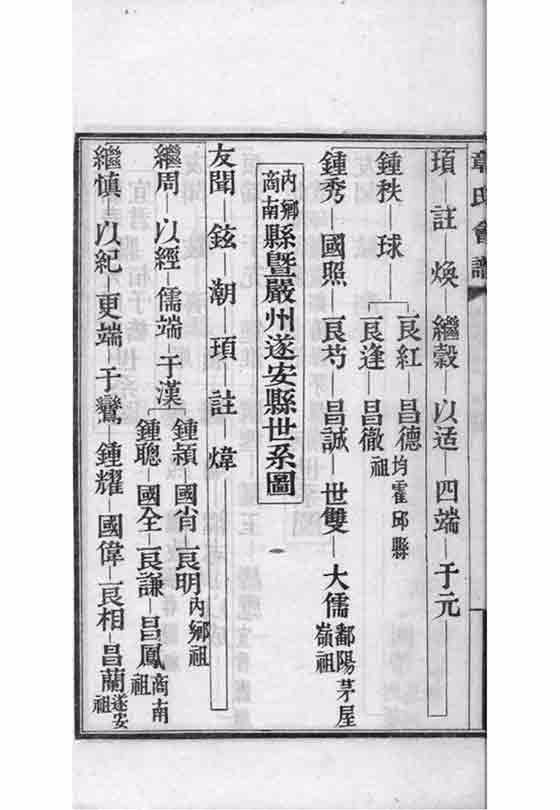 章氏會譜
頊—註—煥—繼穀—以适—四端—于元
鍾秩—球
艮紅—昌德
艮逢—昌徹
均霍邱縣祖
鍾秀—國照—艮芍—昌誠—世雙—大儒 鄱陽茅屋嶺祖
內鄉商南縣暨嚴州遂安縣世系圖
友聞—鉉—潮—頊—註—煒
繼周—以經—儒端—于漢
鍾潁—國省—艮明 內鄉祖
鍾聰—國全—艮謙—昌鳳 商南祖
繼慎—以紀—更端—于鸞—鍾耀—國偉—艮相—昌蘭 遂安祖